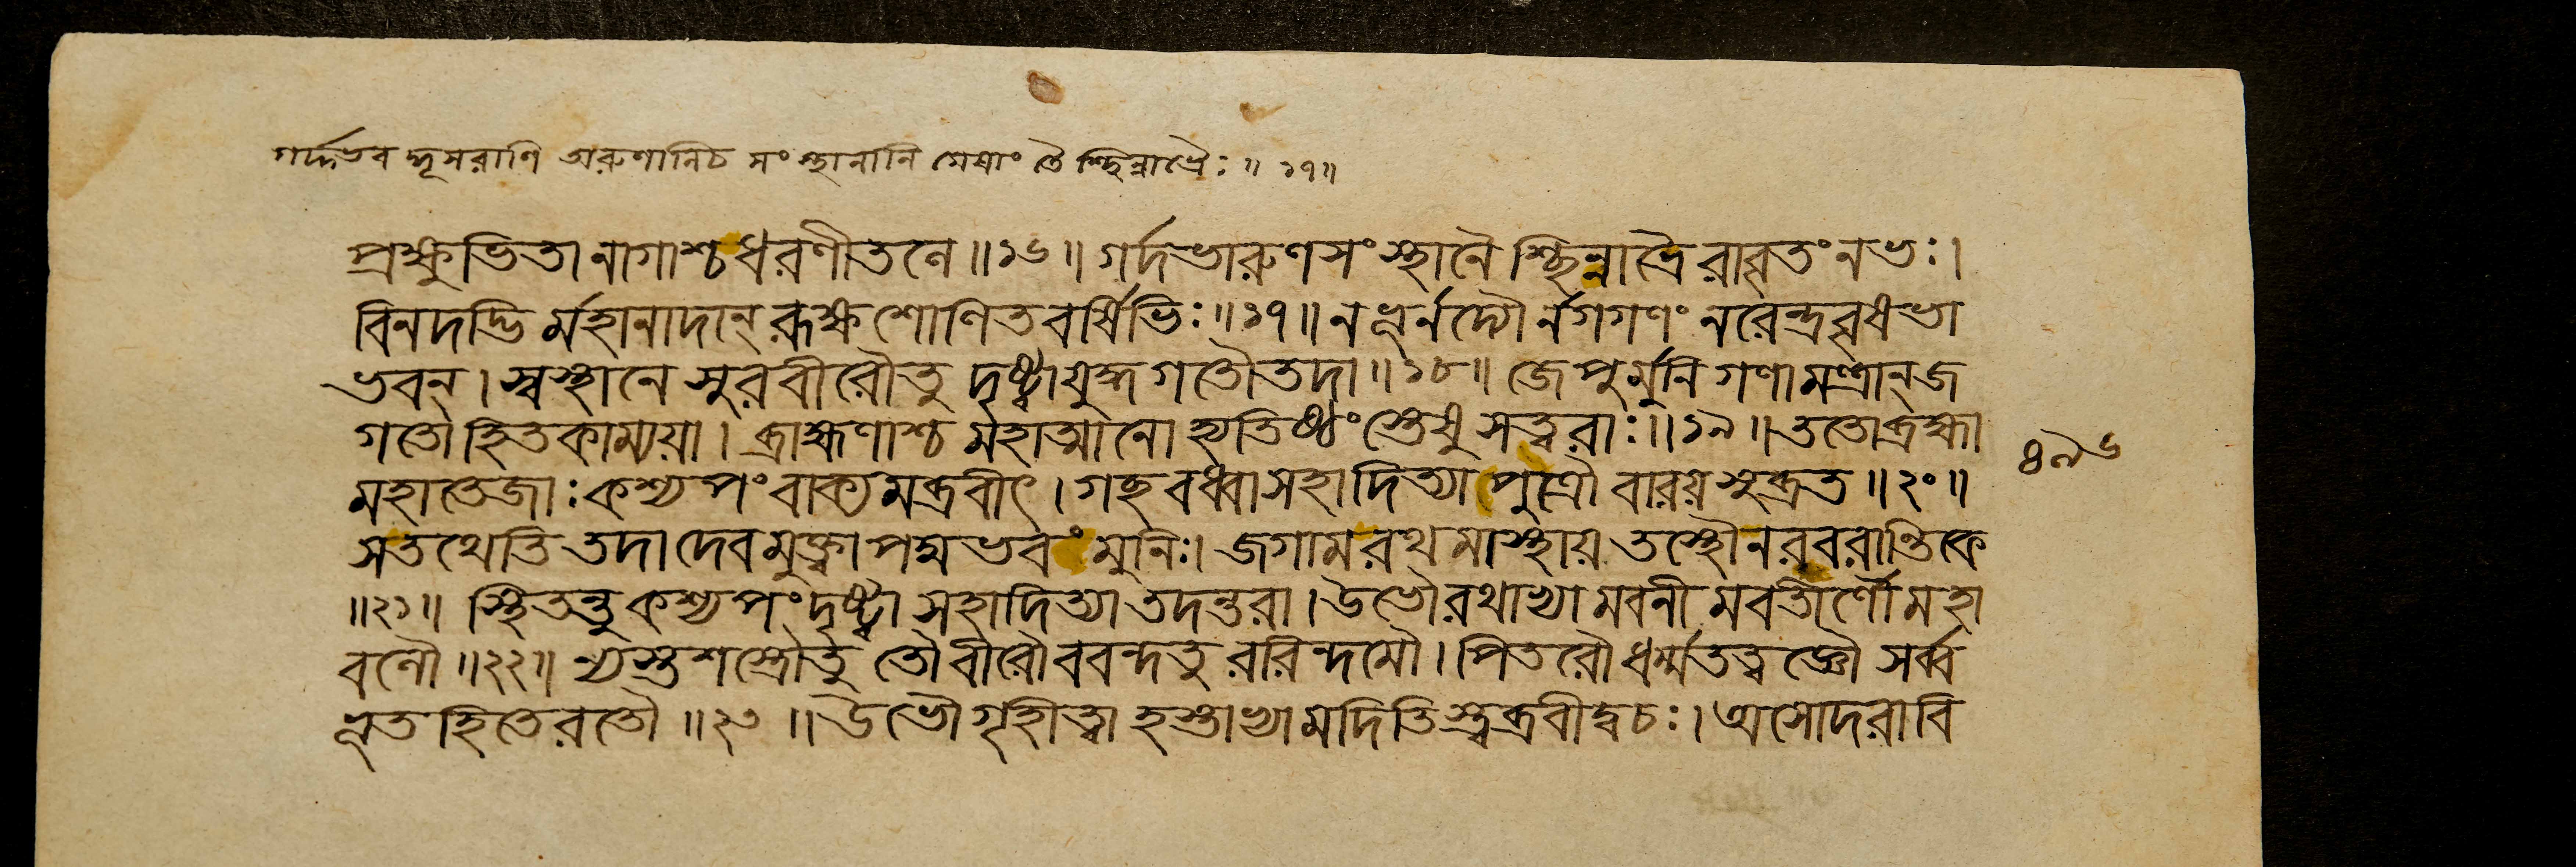 গর্দ্দভব দ্ধূসরাণি অরুণানিচ সংস্থানানি যেষাং তৈ শ্ছিন্নাভ্রৈঃ ॥ ১৭॥
প্রক্ষুভিতা নাগাশ্চ ধরণীতলে ॥১৬॥ গর্দভারুণসংস্থানৈ শ্ছিন্নাভ্রৈ রাবৃতং নভঃ।
বিনদদ্ভি র্মহানাদান্ রূক্ষ শোণিতবর্ষিভিঃ॥১৭॥ ন ভূর্নদ্যৌ র্নগগণং নরেন্দ্রবৃষভা
ভবন্। স্বস্থানে সুরবীরৌতু দৃষ্ট্বাযুদ্ধ গতৌতদা॥১৮॥ জেপুর্মুনিগণামন্ত্রান্ জ
গতো হিতকাম্যয়া। ব্রাহ্মণাশ্চ র্মহাত্মানো হ্যতিষ্ঠং স্তেষু সত্বরাঃ॥১৯॥ততোব্রহ্মা
মহাতেজাঃ কশ্যপং বাক্যমব্রবীৎ। গচ্ছ বধ্বাসহাদিত্যা পুত্রৌ বারয় সুব্রত॥২০॥
সতথেতি তদাদেবমুক্ত্বা পদ্মভবং মুনিঃ। জগাম রথমাস্থায় তস্থৌনরবরান্তিকে
॥২১॥ স্থিতন্তু কশ্যপং দৃষ্ট্বা সহাদিত্যা তদন্তরা। উভৌরথাভ্যা মবনী মবতীর্ণৌ মহা
বলৌ॥২২॥ ন্যস্তশস্ত্রৌতু তৌবীরৌ ববন্দতু ররিন্দমৌ। পিতরৌ ধর্ম্মতত্ত্বজ্ঞৌ সর্ব্ব
ভূতহিতেরতৌ॥২৩॥ উভৌগৃহীত্বা হস্তাভ্যামদিতিস্ত্বব্রবীদ্বচঃ। অসোদরাবি
৪৯৬